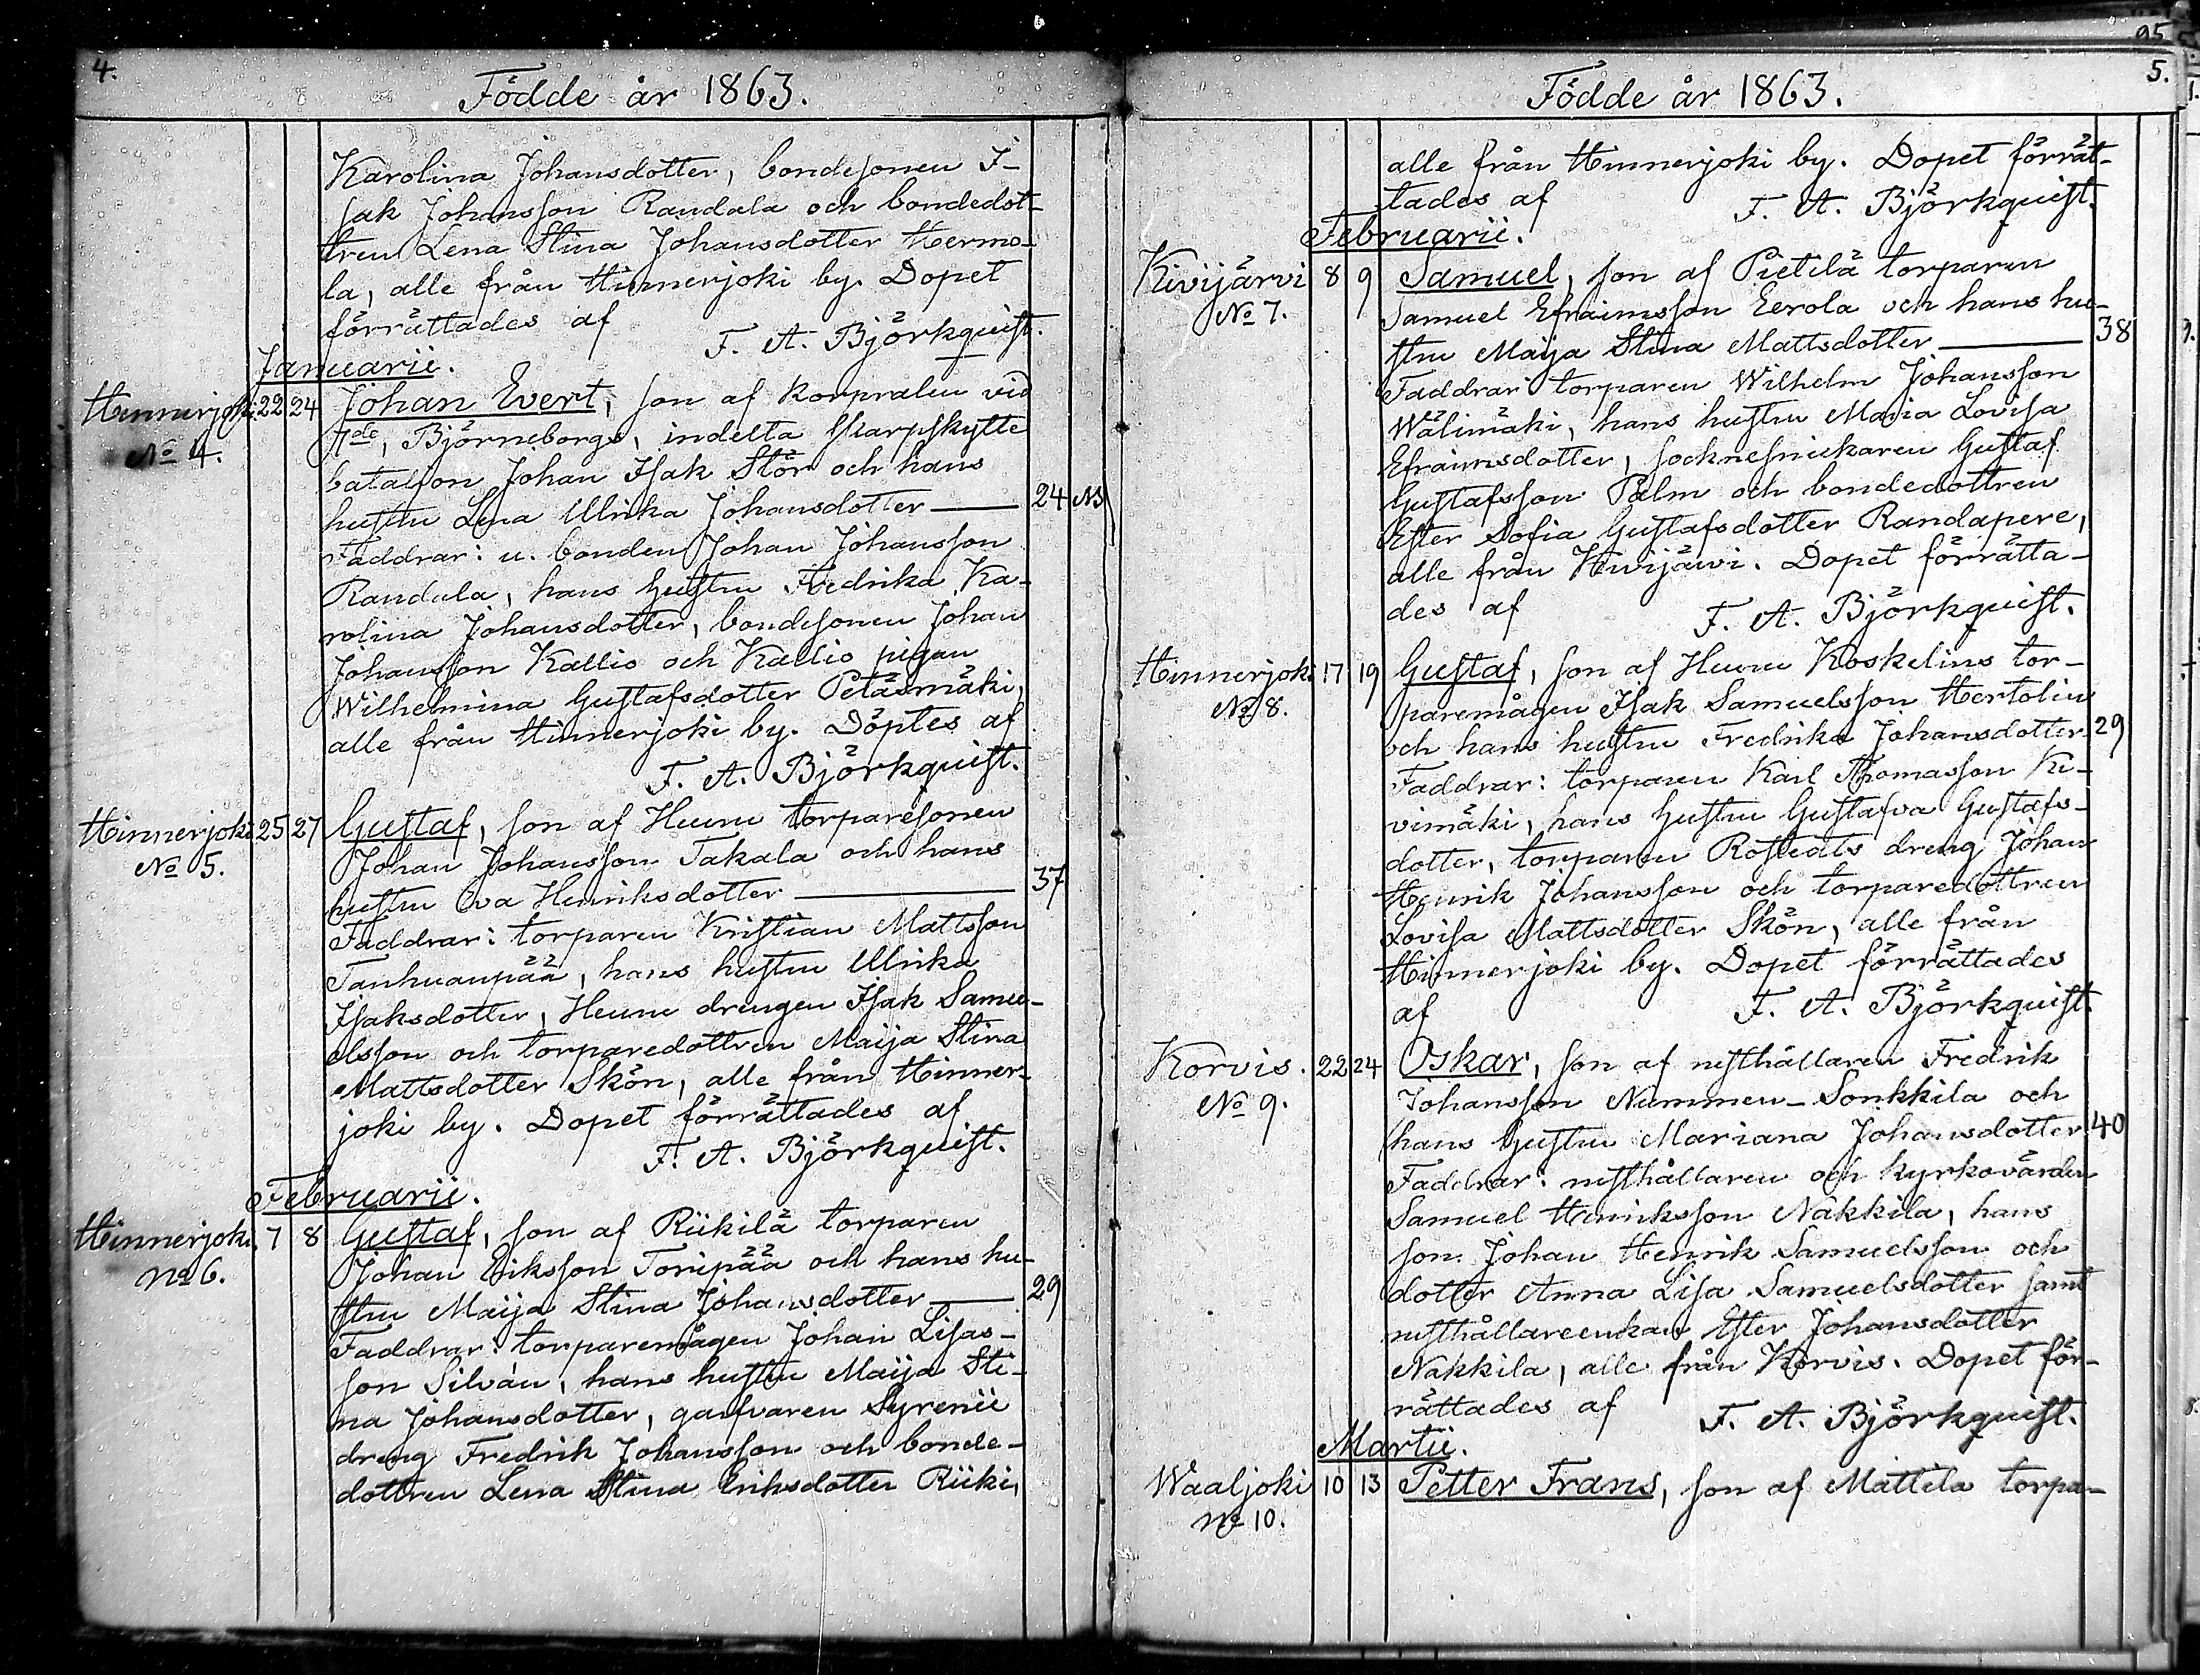 4.
Födde år 1863.
Karolina Johansdotter, bondesonen I-
sak Johansson Randala och bondedot-
tren Lena Stina Johansdotter Hermo-
la, alle från Hinnerjoki by. Dopet
förrättades af
F. A. Björkquist.
Januarii.
Hinnerjoki 22 24 Johan Evert, son af korpralen vid
No 4. 1ste, Björneborgs, indelta skarpskytte
bataljon Johan Isak Stör och hans
hustru Lena Ulrika Johansdotter — 24
Faddrar: u. bonden Johan Johansson
Randala, hans hustru Fredrika Ka-
rolina Johansdotter, bondesonen Johan
Johansson Kallio och Kallio pigan
Wilhelmina Gustafsdotter Petäsmäki,
alle från Hinnerjoki by. Döptes af
F. A. Björkquist.
Hinnerjoki 25 27 Gustaf, son af Heunu torparesonen
No 5. Johan Johansson Takala och hans
hustru Eva Henriksdotter — 37
Faddrar: torparen Kristian Mattsson
Tanhuanpää, hans hustru Ulrika
Isaksdotter, Heunu drengen Isak Samu-
elsson och torparedottren Maija Stina
Mattsdotter Skön, alle från Hinner-
joki by. Dopet förrättades af
F. A. Björkquist.
Februarii.
Hinnerjoki 7 8 Gustaf, son af Riikilä torparen
No 6. Johan Eriksson Toripää och hans hu-
stru Maija Stina Johansdotter — 29
Faddrar: torparemågen Johan Lisas-
son Silván, hans hustru Maija Sti-
na Johansdotter, garfvaren Syrenii
dreng Fredrik Johansson och bonde-
dottren Lena Stina Eriksdotter Riiki,
5.
Födde år 1863.
alle från Hinnerjoki by. Dopet förrät-
tades af
F. A. Björkquist.
Februarii.
Kivijärvi 8 9 Samuel, son af Pietilä torparen
No 7. Samuel Efraimsson Eerola och hans hu-
stru Maija Stina Mattsdotter — 38
Faddrar torparen Wilhelm Johansson
Wälimäki, hans hustru Maria Lovisa
Efraimsdotter, socknesnickaren Gustaf
Gustafsson Palm och bondedottren
Ester Sofia Gustafsdotter Randapere,
alle från Kivijärvi. Dopet förrätta-
des af
F. A. Björkquist.
Hinnerjoki 17 19 Gustaf, son af Heunu Koskelins tor-
No 8. paremågen Isak Samuelsson Hertolin
och hans hustru Fredrika Johansdotter 29
Faddrar: torparen Karl Thomasson Ki-
vimäki, hans hustru Gustafva Gustafs-
dotter, torparen Rostedts dreng Johan
Henrik Johansson och torparedottren
Lovisa Mattsdotter Skön, alle från
Hinnerjoki by. Dopet förrättades
af
F. A. Björkquist.
Korvis. 22 24 Oskar, son af rusthållaren Fredrik
No 9. Johansson Nummen-Sonkkila och
hans hustru Mariana Johansdotter 40
Faddrar: rusthållaren och kyrkovärden
Samuel Henriksson Nakkila, hans
son Johan Henrik Samuelsson och
dotter Anna Lisa Samuelsdotter samt
rusthållareenkan Ester Johansdotter
Nakkila, alle från Korvis. Dopet för-
rättades af
F. A. Björkquist.
Martii.
Waaljoki 10 13 Petter Frans, son af Mattila torpa-
No 10.